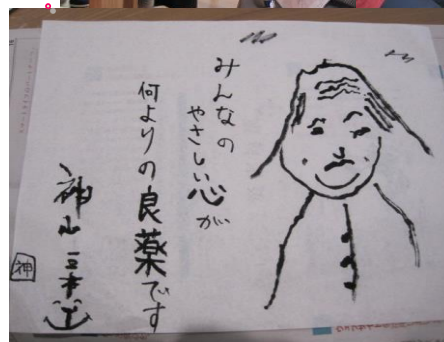 みんなの
やさしい心が
何よりの良薬です
神